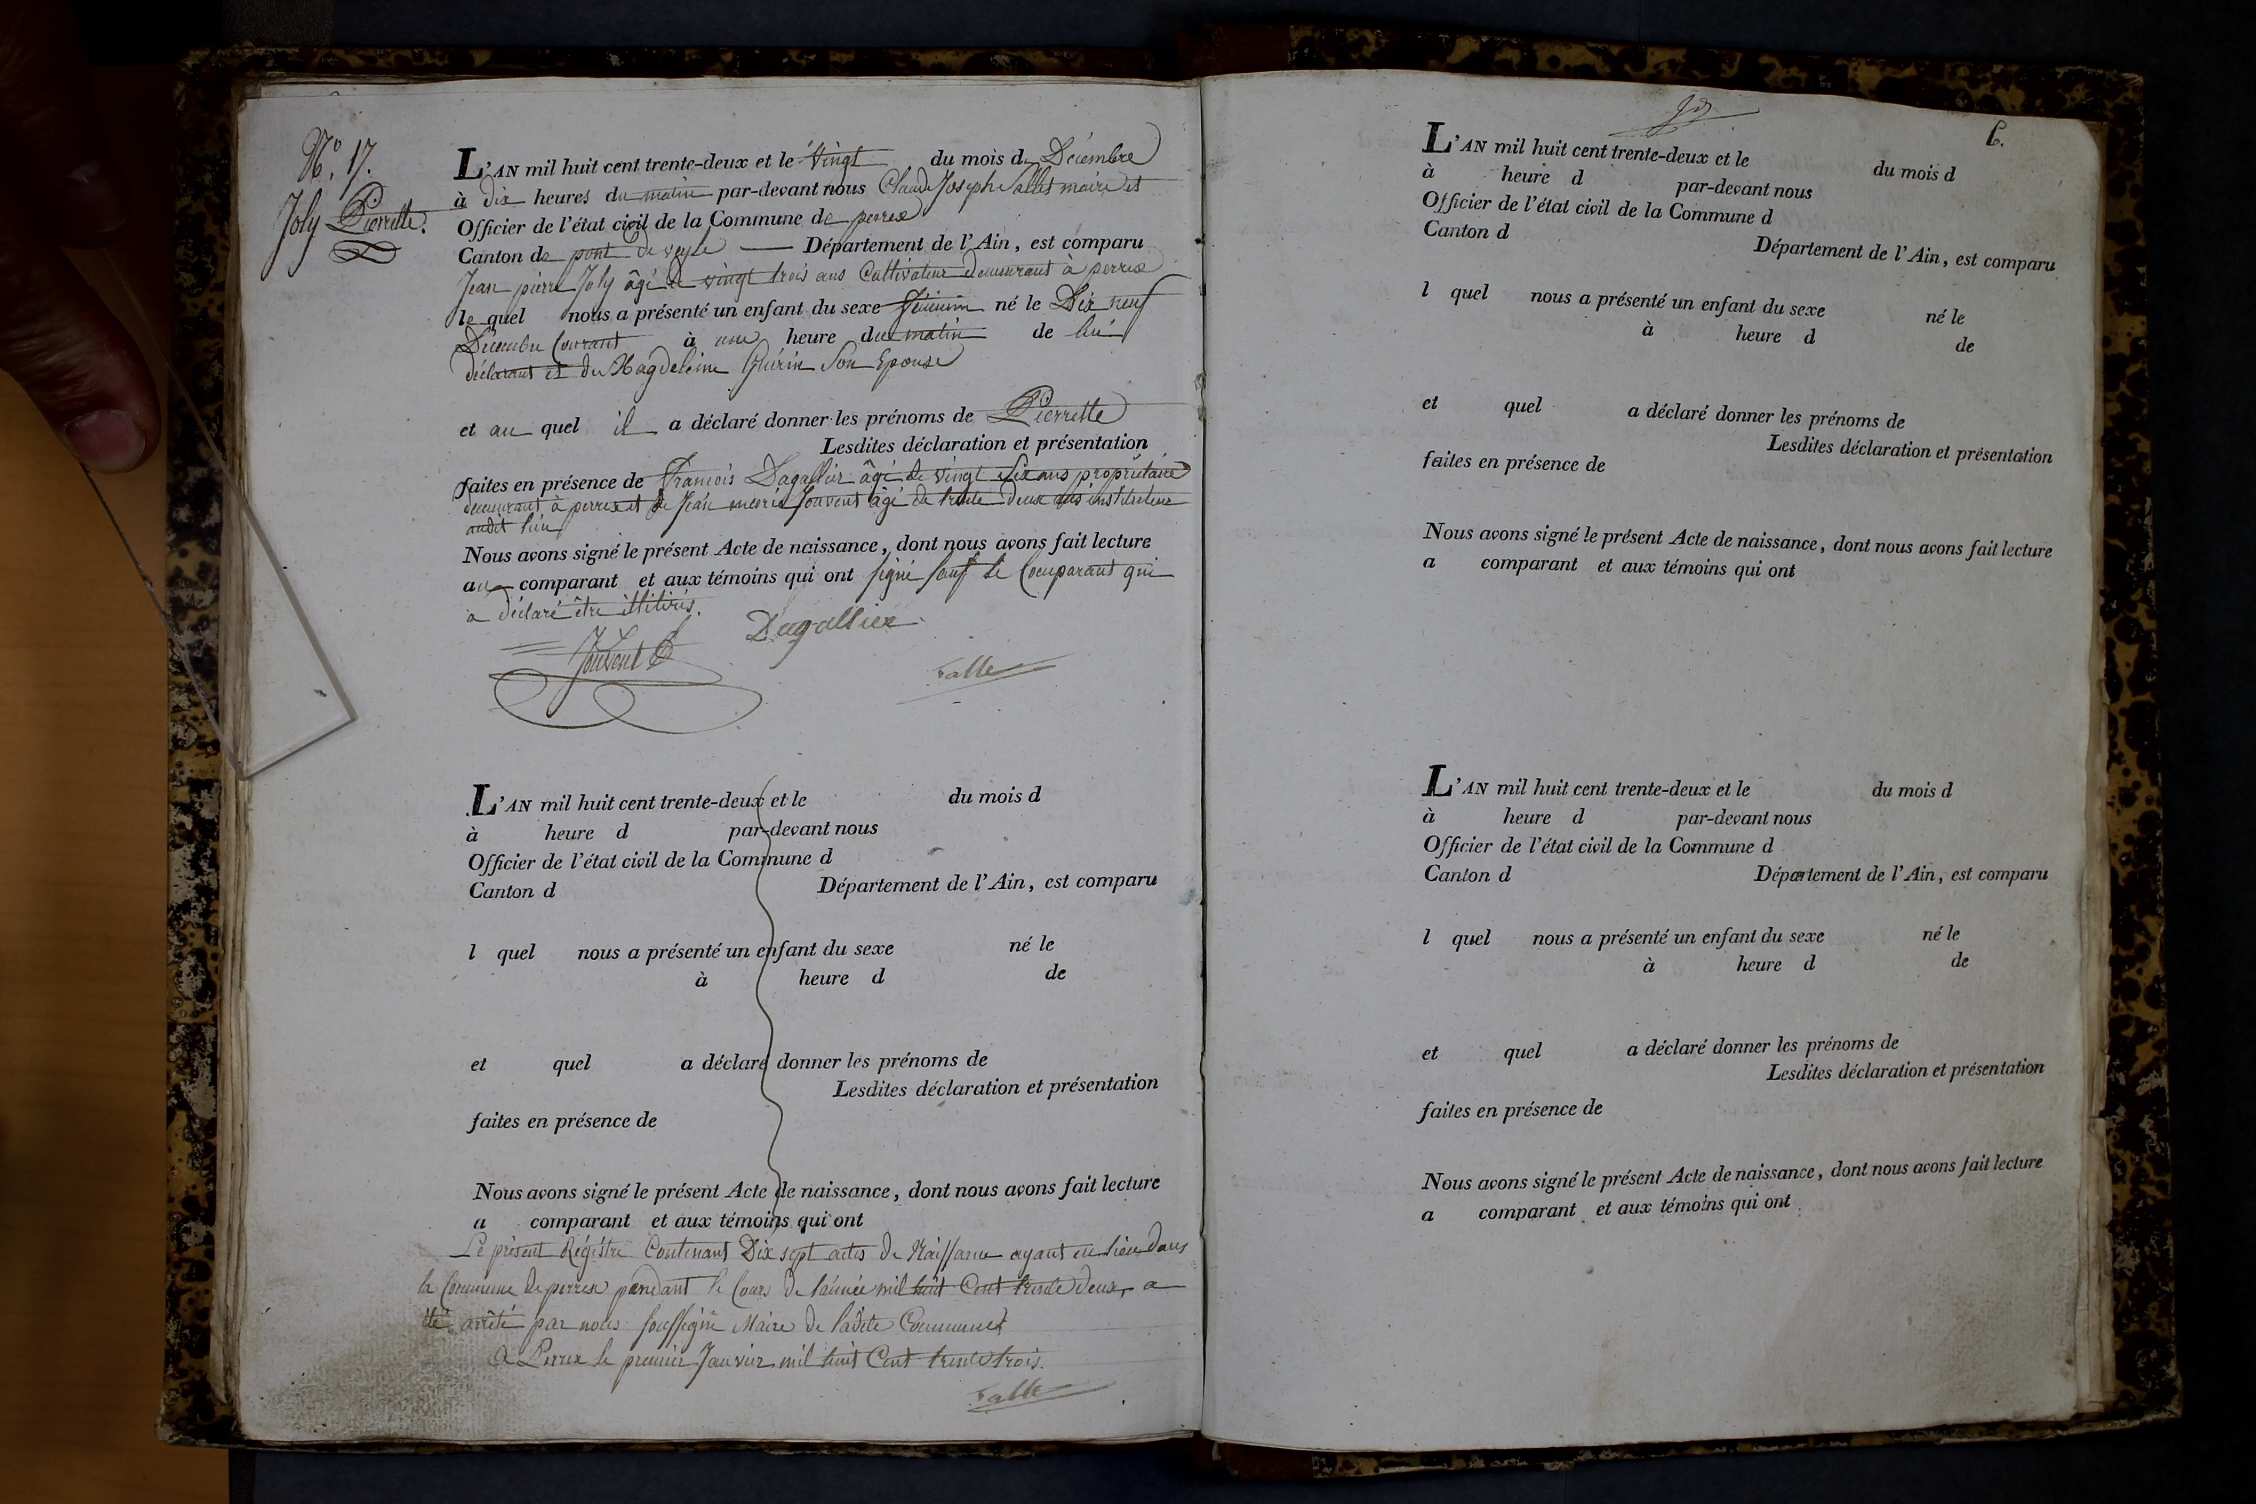 N.° 17.
Joly Pierrette.
L'AN mil huit cent trente-deux et le vingt du mois de Décembre
à dix heures du matin par-devant nous Claude Joseph Sallet maire et
Officier de l'état civil de la Commune de perrex
Canton de pont de veyle Département de l'Ain, est comparu
Jean pierre Joly âgé de vingt trois ans Cultivateur demeurant à perrex
le quel nous a présenté un enfant du sexe féminin né le Dix neuf
Décembre Courant à une heure du matin de lui
déclarant et de Magdeleine Guérin Son Epouse
et au quel il a déclaré donner les prénoms de Pierrette
Lesdites déclaration et présentation
faites en présence de francois Dagallier âgé de vingt Six ans propriétaire
demeurant à perrex et de Jean marie Jouvent âgé de trente deux ans instituteur
audit lieu
Nous avons signé le présent Acte de naissance, dont nous avons fait lecture
au comparant et aux témoins qui ont signé sauf le Comparant qui
a déclaré être illitérés.
Jouvent
Dagallier
L'AN mil huit cent trente-deux et le du mois d
à heure d par-devant nous
Officier de l'état civil de la Commune d
Canton d Département de l'Ain, est comparu
l quel nous a présenté un enfant du sexe né le
à heure d de
et quel a déclaré donner les prénoms de
Lesdites déclaration et présentation
faites en présence de
Nous avons signé le présent Acte de naissance, dont nous avons fait lecture
a comparant et aux témoins qui ont
Le présent Régistre Contenant Dix sept actes de Naissance ayant eu lieu dans
la Commune de perrex pendant le Cours de l'année mil huit Cent trente deux, a
été arrêté par nous soussigné Maire de ladite Commune
A Perrex le premier Janvier mil huit Cent trente trois.
6.
L'AN mil huit cent trente-deux et le du mois d
à heure d par-devant nous
Officier de l'état civil de la Commune d
Canton d Département de l'Ain, est comparu
l quel nous a présenté un enfant du sexe né le
à heure d de
et quel a déclaré donner les prénoms de
Lesdites déclaration et présentation
faites en présence de
Nous avons signé le présent Acte de naissance, dont nous avons fait lecture
a comparant et aux témoins qui ont
L'AN mil huit cent trente-deux et le du mois d
à heure d par-devant nous
Officier de l'état civil de la Commune d
Canton d Département de l'Ain, est comparu
l quel nous a présenté un enfant du sexe né le
à heure d de
et quel a déclaré donner les prénoms de
Lesdites déclaration et présentation
faites en présence de
Nous avons signé le présent Acte de naissance, dont nous avons fait lecture
a comparant et aux témoins qui ont